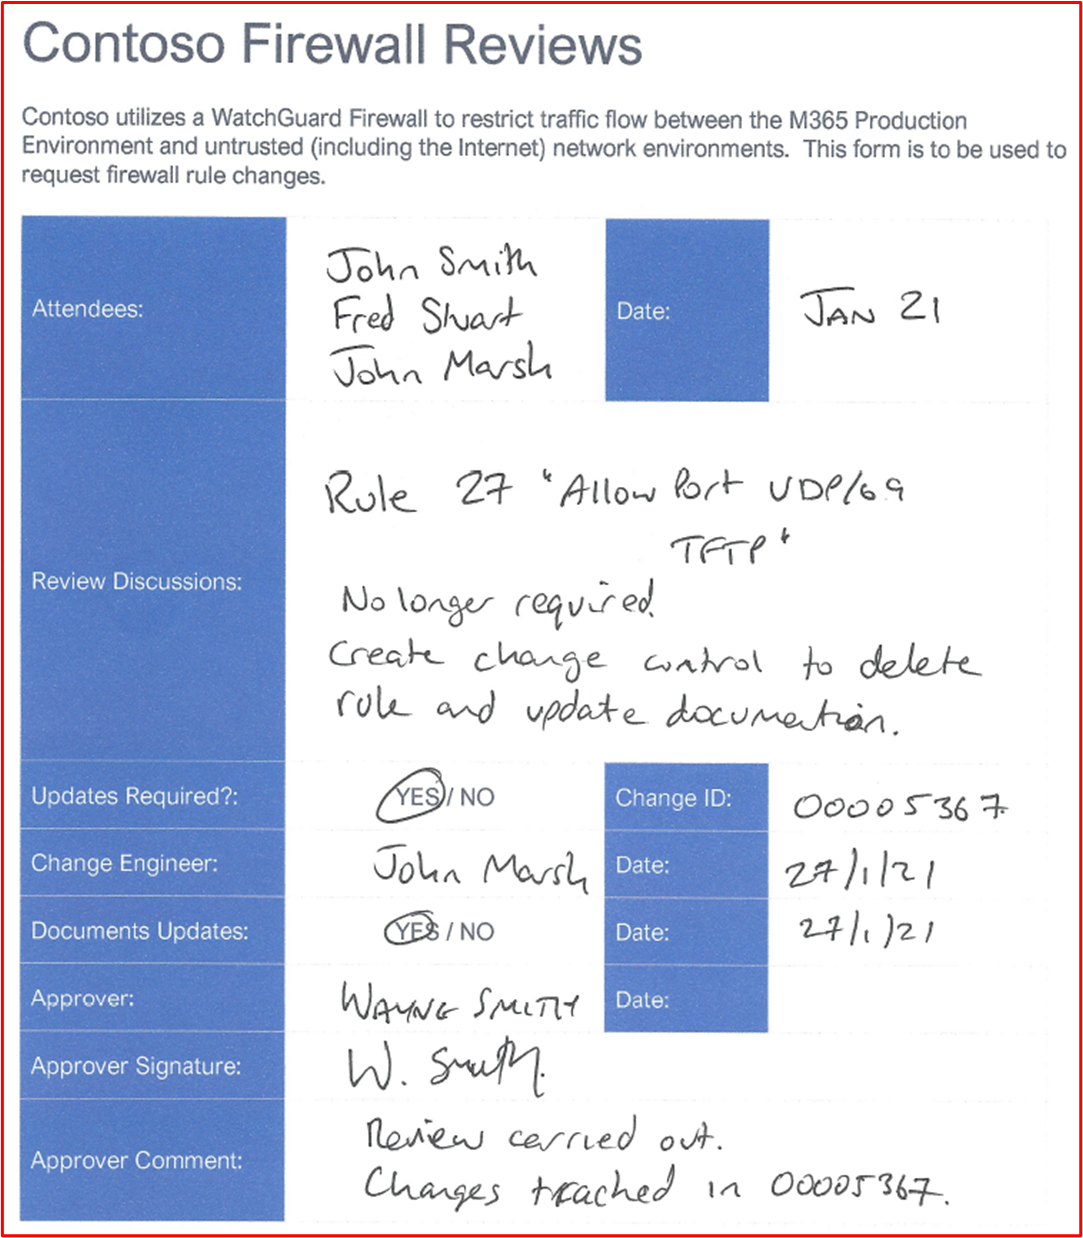 Contoso Firewall Reviews
Contoso utilizes a WatchGuard Firewall to restrict traffic flow between the M365 Production
Environment and untrusted (including the Internet) network environments. This form is to be used to
request firewall rule changes.
Attendees:
John Smith
Fred Stuart
John Marsh
Date:
JAN 21
Review Discussions:
Rule 27 "Allow Port UDP/69
TFTP"
No longer required.
Create change control to delete
rule and update documention.
Updates Required?: YES / NO Change ID: 00005367
Change Engineer: John Marsh Date: 27/1/21
Documents Updates: YES / NO Date: 27/1/21
Approver: WAYNE SMITH Date:
Approver Signature: W. Smith.
Approver Comment:
Review carried out.
Changes tracked in 00005367.